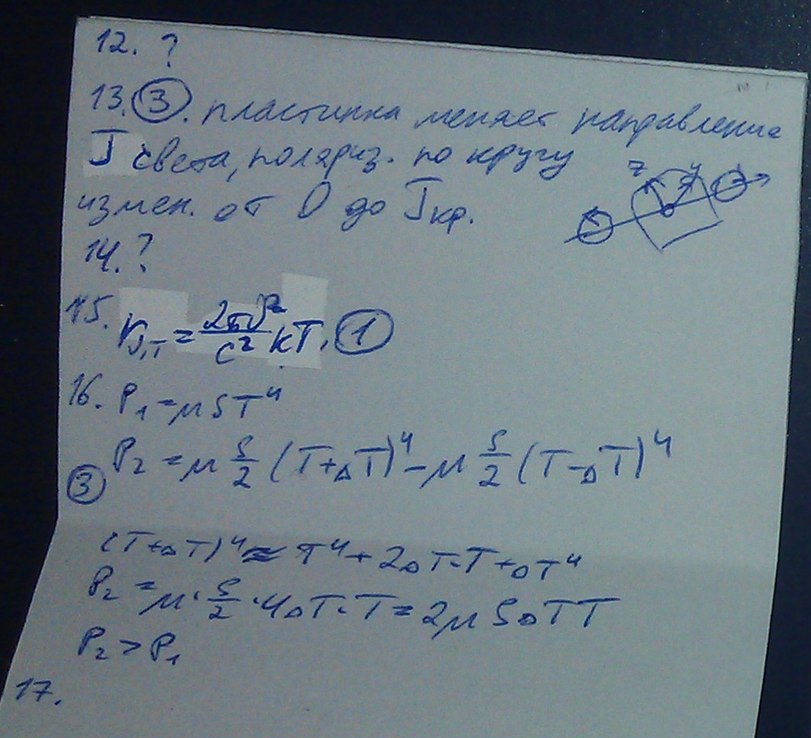 12. ?
13. ③. пластинка меняет направление
J света, поляриз. по кругу
измен. от 0 до Jкр.
z y
14. ?
15. rν,T = 2πν²/c² kT. ①
16. P₁ = μST⁴
③ P₂ = μ S/2 (T+ΔT)⁴ - μ S/2 (T-ΔT)⁴
(T+ΔT)⁴ ≈ T⁴ + 2ΔT·T + ΔT⁴
P₂ = μ · S/2 · 4ΔT·T = 2μSΔTT
P₂ > P₁
17.